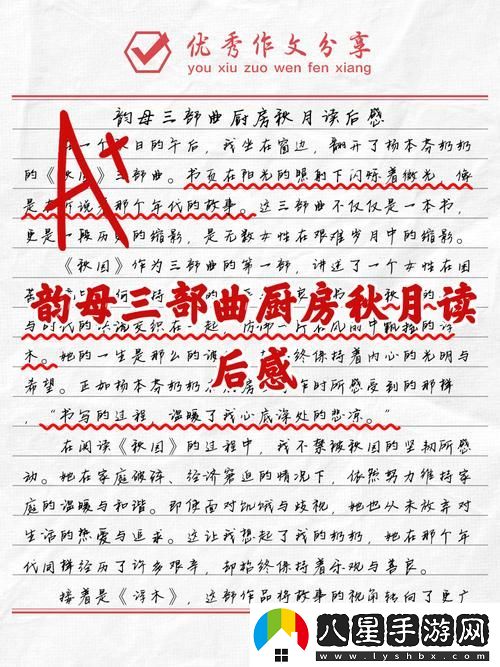 优秀作文分享
you xiu zuo wen fen xiang
韵母三部曲厨房秋月读后感
一个 日的午后，我坐在窗边，翻开了杨本芬奶奶
的《秋园》三部曲。书页在阳光的照射下闪烁着微光，像
是在诉说着那个年代的故事。这三部曲不仅仅是一本书，
更是一段历史的缩影，是无数女性在艰难岁月中的缩影。
《秋园》作为三部曲的第一部，讲述了一个女性在困
韵母三部曲厨房秋月读
后感
木。她的一生是那么的 终保持着内心的光明与
希望。正如杨本芬奶奶 作时所感受到的那样
，“书写的过程，温暖了我心底深处的悲凉。”
在阅读《秋园》的过程中，我不禁被秋园的坚韧所感
动。她在家庭破碎、经济窘迫的情况下，依然努力维持家
庭的温暖与和谐。即便面对饥饿与歧视，她也从未放弃对
生活的热爱与追求。这让我想起了我的奶奶，她在那个年
代同样经历了许多艰辛，却始终保持着乐观与善良。
接着是《浮木》，这部作品将故事的视角转向了更广
A+
八星手游网
www.lyshbx.com